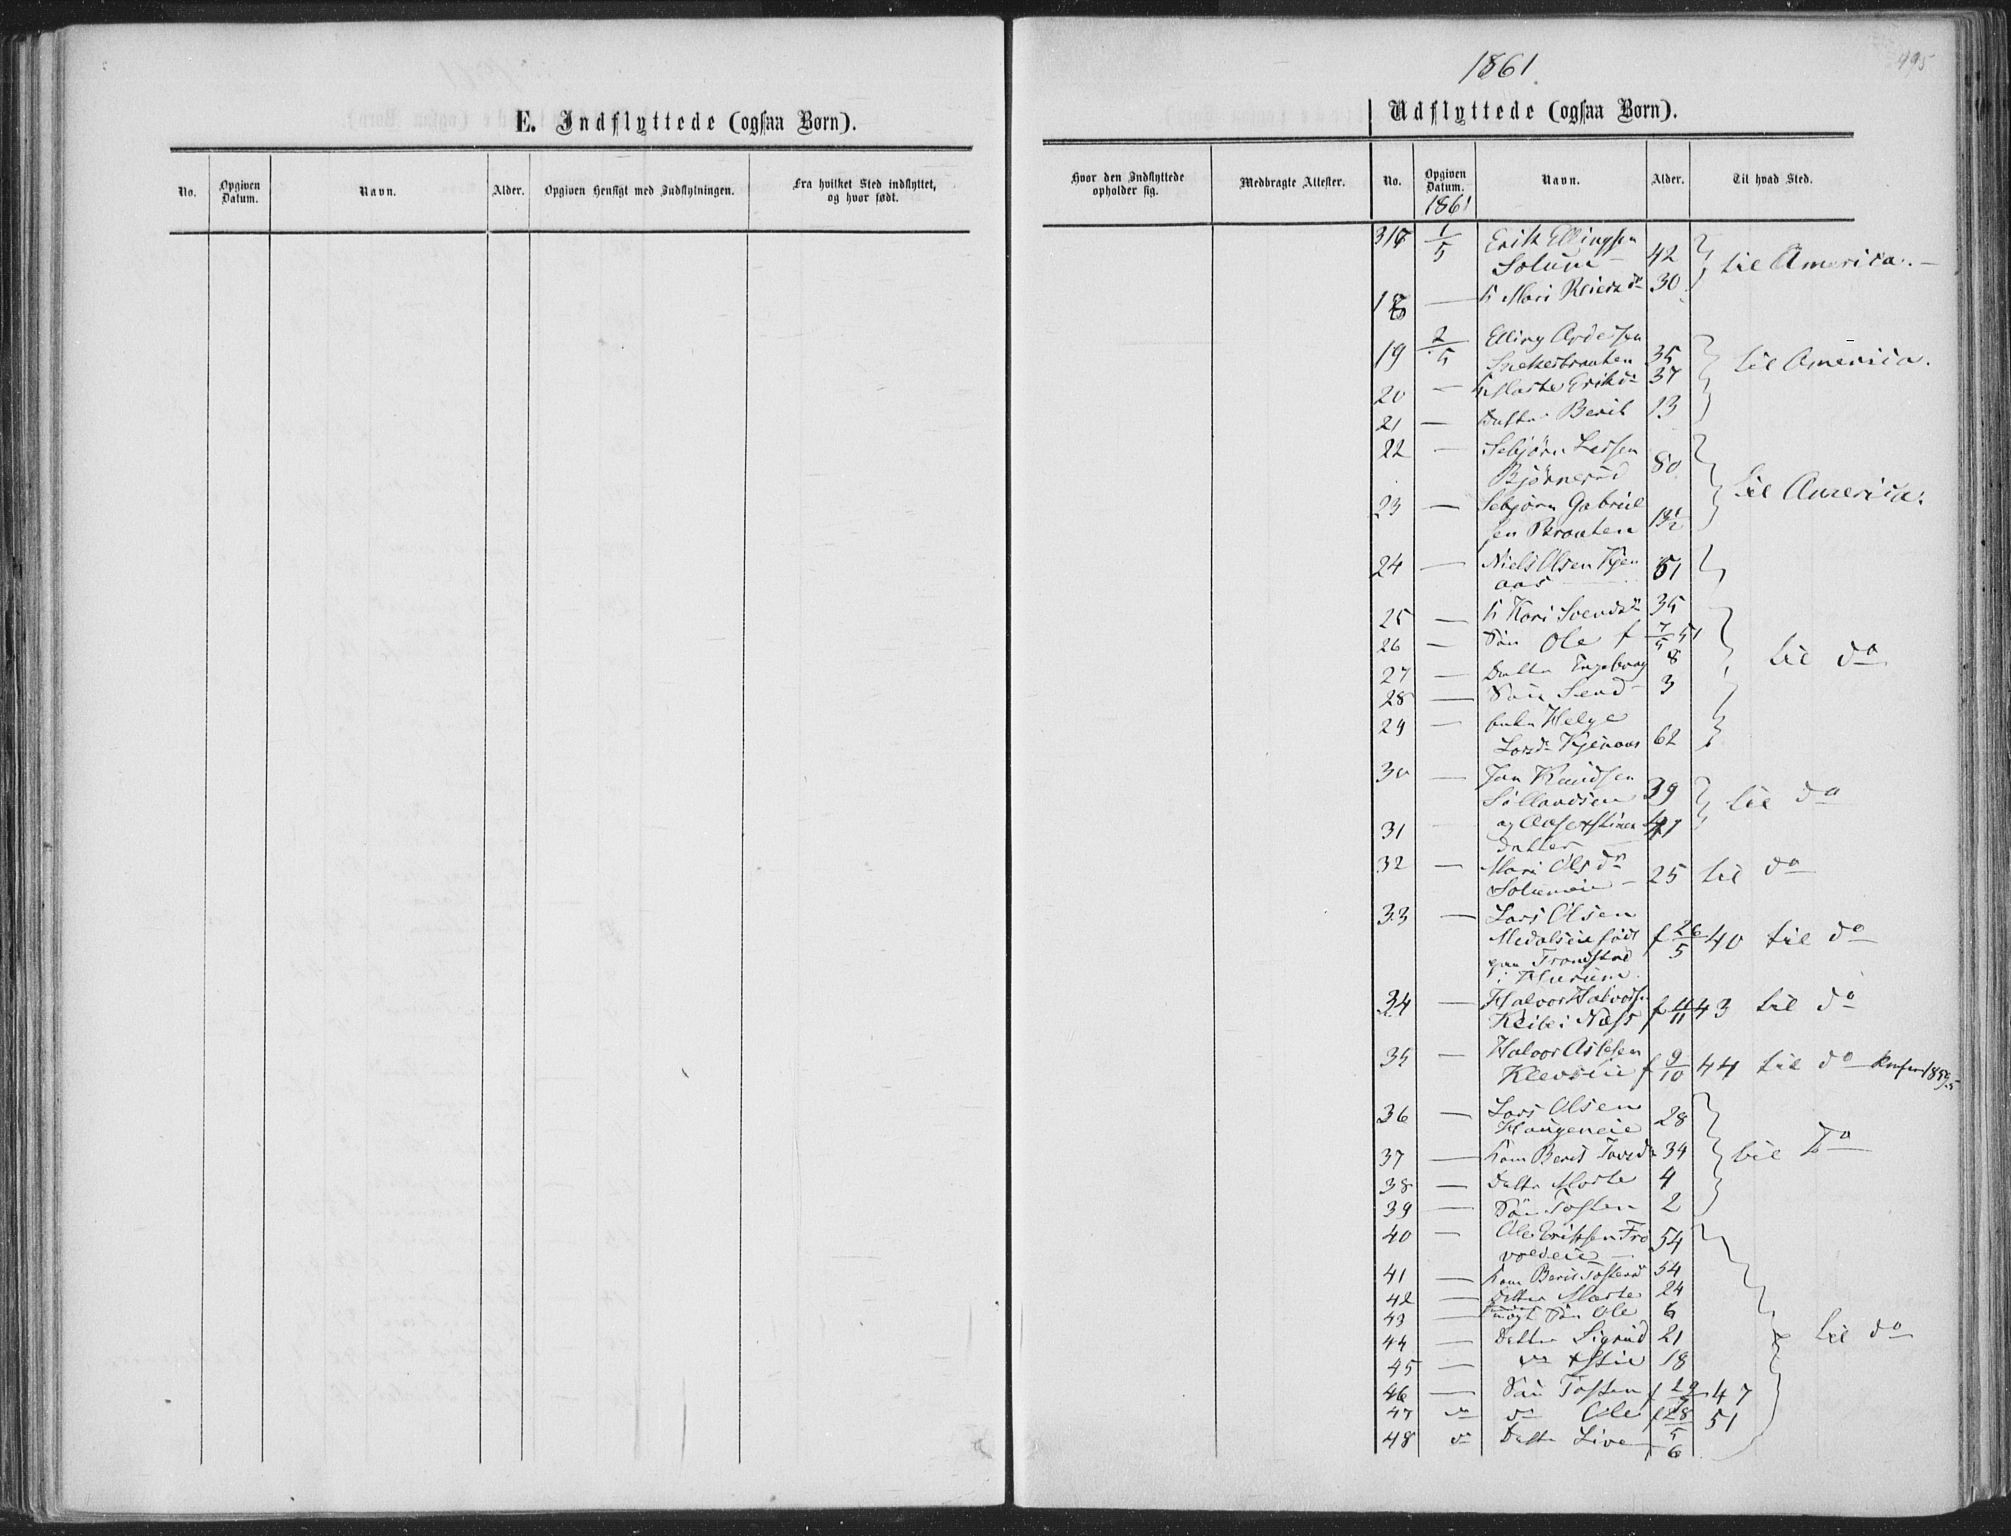 E. Indflyttede (ogsaa Børn).
No.
Opgiven Datum.
Navn.
Alder.
Opgiven Hensigt med Indflytningen.
Fra hvilket Sted indflyttet, og hvor født.
1861.
495
Udflyttede (ogsaa Børn).
Hvor den Indflyttede opholder sig.
Medbragte Attester.
No.
Opgiven Datum.
1861
Navn.
Alder.
Til hvad Sted.
317 1/5 Erik Ellingsen
Solum 42 til America.
18 — K Mari 30
19 2/5 Elling
35 til America.
20 — K Marte Eriksd 37
21 — Datter Berit 13
22 — Sebjørn Larsen
Bjørnerud 80 til America.
23 — Sebjørn Gabriel
sen Braaten 1½
24 — Niels Olsen Kjen
aas 51
25 — K Kari Svendsd 35
26 — Søn Ole f 7/5 51
27 — Datter Ingeborg 8 til do
28 — Søn Svend 3
29 — Enke Helge
Larsd Kjenaas 62
30 — Jan Knudsen
39 til do
31 — og
datter
32 — Mari Olsdr
Solumeie 25 til do
33 — Lars Olsen
Medalseie født f 26/5 40 til do
paa
i
34 — Halvor Halvors
i Næss f 11/11 43 til do
35 — Halvor Aslesen
Klevseie f 9/10 44 til do 1859
36 — Lars Olsen
Haugeneie 28
37 — Kone Berit 34 til Do
38 — Datter Marte 4
39 — Søn Tosten 2
40 — Ole Eriksen Tro
voldeie 54
41 — Kone Berit Tostensd 54
42 — Datter Marte 24
43 — Søn Ole 6
44 — Datter Sigrid 21 til do
45 — do 18
46 — Søn Tosten f 29 47
47 do do Ole f 28/5 51
48 do Datter Live 6